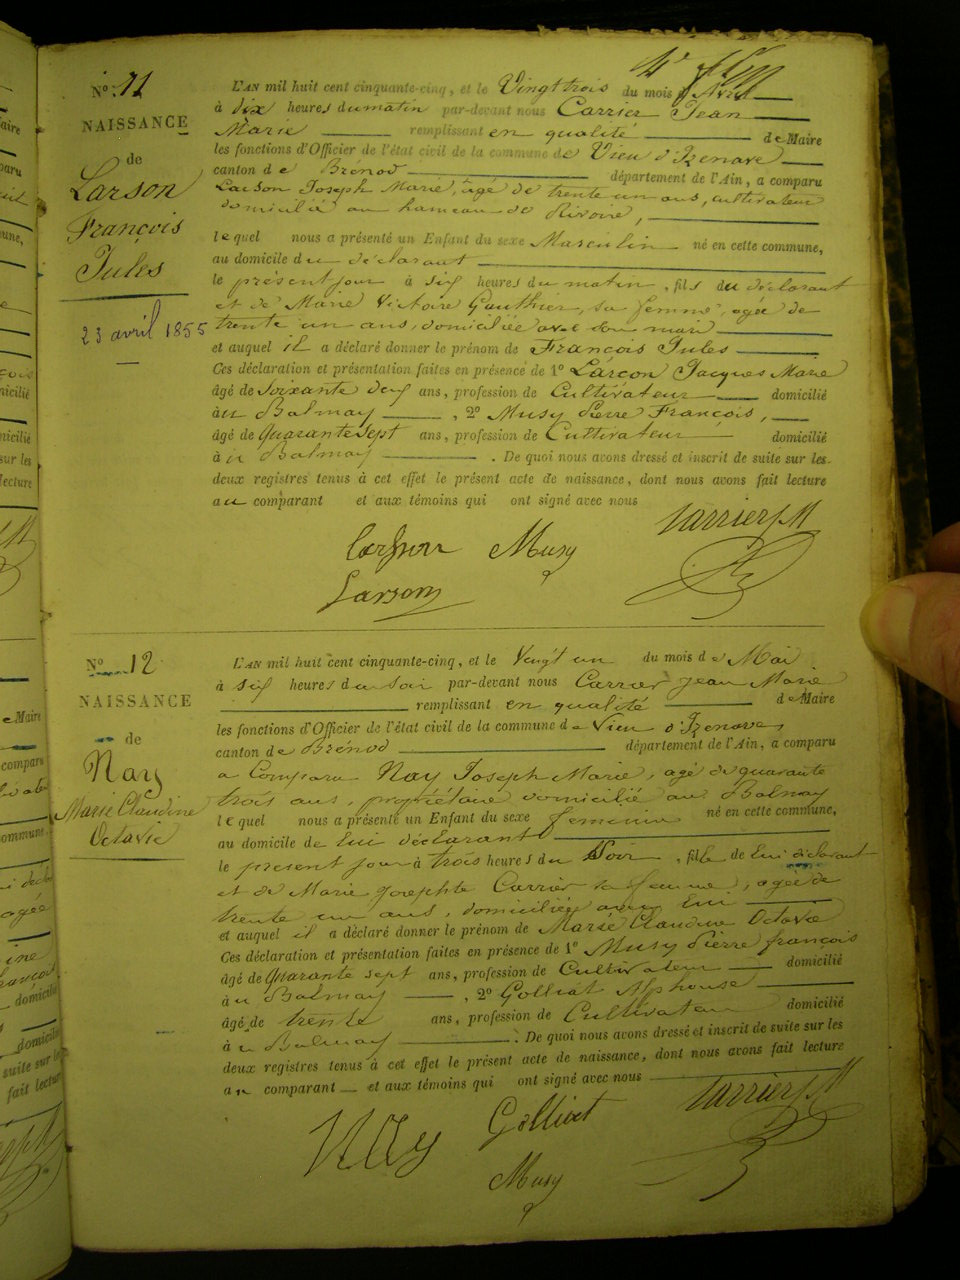 N° 11
NAISSANCE
de
Larson
François
Jules
23 avril 1855
L'AN mil huit cent cinquante-cinq, et le Vingt trois du mois d'Avril
à dix heures du matin par-devant nous Carrier Jean
Marie remplissant en qualité de Maire
les fonctions d'Officier de l'état civil de la commune de Vieu d'Izenave
canton de Brénod département de l'Ain, a comparu
Larson Joseph Marie, âgé de trente un ans, cultivateur
domicilié au hameau de Rivoire,
lequel nous a présenté un Enfant du sexe Masculin né en cette commune,
au domicile du déclarant
le présent jour à six heures du matin, fils du déclarant
et de Marie Victoire Gauthier, sa femme, agée de
trente un ans, domiciliée avec son mari
et auquel il a déclaré donner le prénom de François Jules
Ces déclaration et présentation faites en présence de 1° Larçon Jacques Marie
âgé de Soixante deux ans, profession de Cultivateur domicilié
à Balmay, 2° Musy Pierre François,
âgé de Quarante sept ans, profession de Cultivateur domicilié
à Balmay. De quoi nous avons dressé et inscrit de suite sur les
deux registres tenus à cet effet le présent acte de naissance, dont nous avons fait lecture
au comparant et aux témoins qui ont signé avec nous
Musy Carrier J M
Larson
N° 12
NAISSANCE
de
Nay
Marie Claudine
Octavie
L'AN mil huit cent cinquante-cinq, et le Vingt un du mois de Mai
à six heures du soir par-devant nous Carrier Jean Marie
remplissant en qualité de Maire
les fonctions d'Officier de l'état civil de la commune de Vieu d'Izenave,
canton de Brénod département de l'Ain, a comparu
a Comparu Nay Joseph Marie, agé de quarante
trois ans, propriétaire domicilié au Balmay
lequel nous a présenté un Enfant du sexe feminin né en cette commune,
au domicile de lui déclarant
le présent jour à trois heures du Soir, fille de lui déclarant
et de Marie Josephte Carrier sa femme, agée de
trente un ans, domiciliée avec lui
et auquel il a déclaré donner le prénom de Marie Claudine Octavie
Ces déclaration et présentation faites en présence de 1° Musy Pierre françois
âgé de Quarante sept ans, profession de Cultivateur domicilié
à Balmay, 2° Golliat Alphonse
âgé de trente ans, profession de Cultivateur domicilié
à Balmay. De quoi nous avons dressé et inscrit de suite sur les
deux registres tenus à cet effet le présent acte de naissance, dont nous avons fait lecture
au comparant et aux témoins qui ont signé avec nous
Nay Golliat Carrier J M
Musy